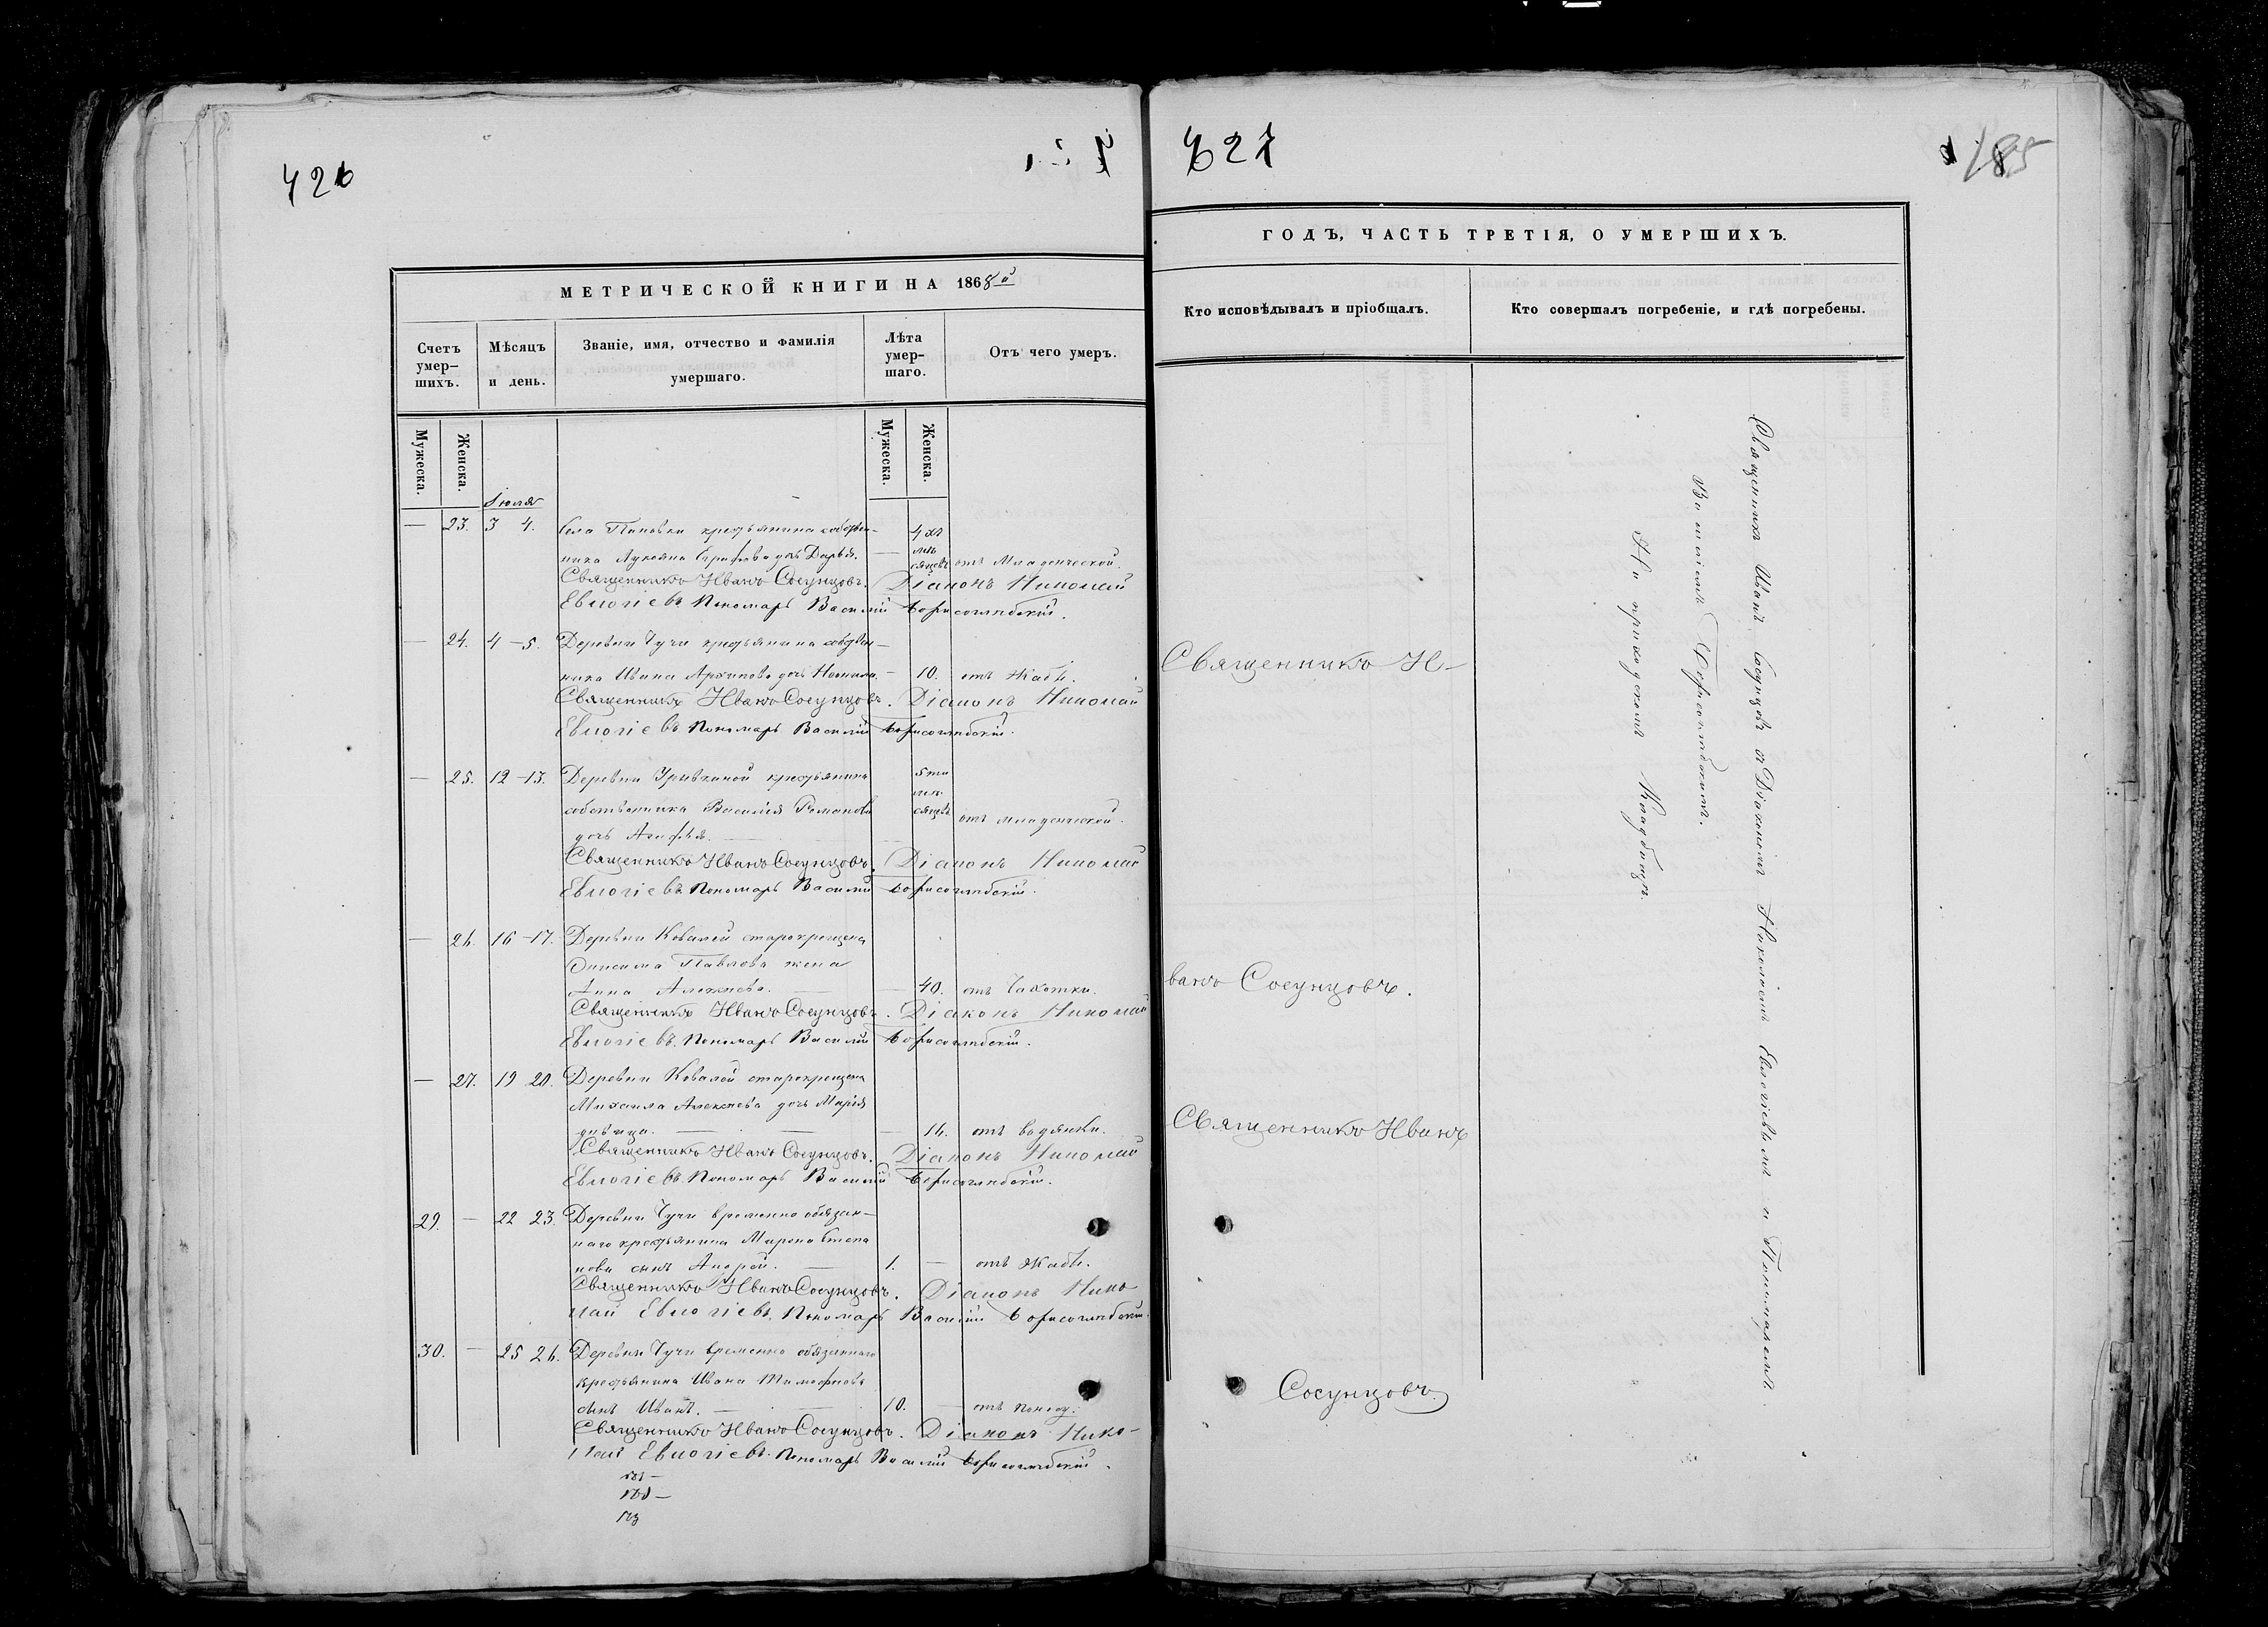 426
427
185
МЕТРИЧЕСКОЙ КНИГИ НА 1868й
Счетъ умер-шихъ.
Мѣсяцъ и день.
Званіе, имя, отчество и фамилія умершаго.
Лѣта умер-шаго.
Отъ чего умеръ.
Мужеска.
Женска.
Мужеска.
Женска.
Іюля
— 23. 3 4. Села Поповки крестьянина собствен-
ника Лукояна дочь Дарья. — 4хъ мѣсяцевъ отъ Младенческой.
Священникъ Иванъ Сосунцовъ. Діаконъ Николай
Евлогіевъ. Пономарь Василій Борисоглѣбскій.
— 24. 4 — 5. Деревни Чучи крестьянина собствен-
ника Ивана Архипова дочь — 10. отъ Жабы.
Священникъ Иванъ Сосунцовъ. Діаконъ Николай
Евлогіевъ. Пономарь Василій Борисоглѣбскій.
— 25. 12 — 13. Деревни крестьянина
собственника Василія Романова
дочь Агафья. — 5ти мѣсяцевъ отъ младенческой.
Священникъ Иванъ Сосунцовъ. Діаконъ Николай
Евлогіевъ. Пономарь Василій Борисоглѣбскій.
— 26. 16 — 17. Деревни Ковалей старокрещена
Онисима Павлова жена
Анна Алексѣева. — 40. отъ Чахотки.
Священникъ Иванъ Сосунцовъ. Діаконъ Николай
Евлогіевъ. Пономарь Василій Борисоглѣбскій.
— 27. 19 20. Деревни Ковалей старокрещена
Михаила Алексѣева дочь Марія
дѣвица. — 16. отъ водянки.
Священникъ Иванъ Сосунцовъ. Діаконъ Николай
Евлогіевъ. Пономарь Василій Борисоглѣбскій.
29. — 22 23. Деревни Чучи временно обязан-
наго крестьянина Мирона Степа
нова сынъ Андрей. — 1. — отъ Жабы.
Священникъ Иванъ Сосунцовъ. Діаконъ Нико
лай Евлогіевъ. Пономарь Василій Борисоглѣбскій.
30. — 25 26. Деревни Чучи временно обязаннаго
крестьянина Ивана Тимофѣева
сынъ Иванъ. — 10. — отъ
Священникъ Иванъ Сосунцовъ. Діаконъ Нико-
лай Евлогіевъ. Пономарь Василій Борисоглѣбскій.
ГОДЪ, ЧАСТЬ ТРЕТІЯ, О УМЕРШИХЪ.
Кто исповѣдывалъ и пріобщалъ.
Кто совершалъ погребеніе, и гдѣ погребены.
Священникъ И-
ванъ Сосунцовъ.
Священникъ Иванъ
Сосунцовъ
Священникъ Иванъ Сосунцовъ съ Діакономъ Николаемъ Евлогіевымъ и Пономаремъ
Василіемъ Борисоглѣбскимъ.
На приходскомъ Кладбищѣ.